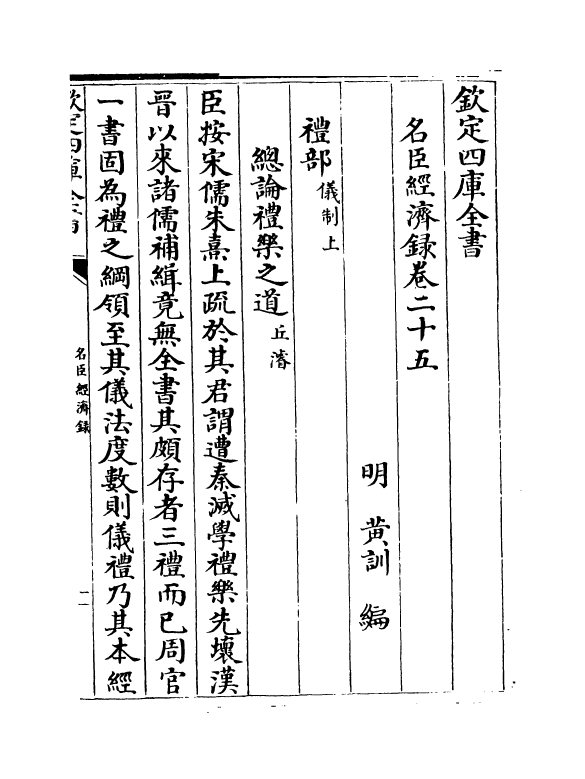 欽定四庫全書
名臣經濟録卷二十五
明 黄訓 編
禮部儀制上
總論禮樂之道丘濬
臣按宋儒朱熹上疏於其君謂遭秦滅學禮樂先壞漢
晉以來諸儒補緝竟無全書其頗存者三禮而已周官
一書固為禮之綱領至其儀法度數則儀禮乃其本經
欽定四庫全書
名臣經濟録